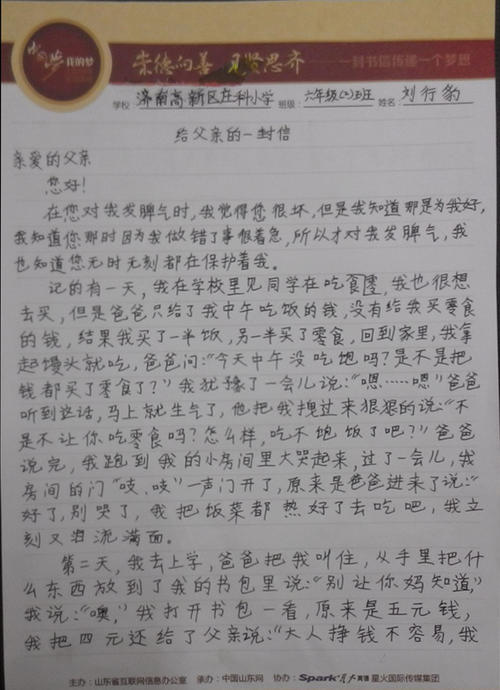 中国梦 我的梦
崇德向善 见贤思齐——一封书信传递一个梦想
学校 济南高新区庄科小学 班级: 六年级(2)班 姓名: 刘行豹
给父亲的一封信
亲爱的父亲
您好!
在您对我发脾气时,我觉得您很坏,但是我知道那是为我好,
我知道您那时因为我做错了事很着急,所以才对我发脾气,我
也知道您无时无刻都在保护着我。
记的有一天,我在学校里见同学在吃食零,我也很想
去买,但是爸爸只给了我中午吃饭的钱,没有给我买零食
的钱,结果我买了一半饭,另一半买了零食,回到家里,我拿
起馒头就吃,爸爸问:“今天中午没吃饱吗?是不是把
钱都买了零食了?”我犹豫了一会儿说:“嗯……嗯”爸爸
听到这话,马上就生气了,他把我拽过来狠狠的说:“不
是不让你吃零食吗?怎么样,吃不饱饭了吧?”爸爸
说完,我跑到我的小房间里大哭起来,过了一会儿,我
房间的门“吱、吱”一声门开了,原来是爸爸进来了说:“
好了,别哭了,我把饭菜都热好了去吃吧,我立
刻又泪流满面。
第二天,我去上学,爸爸把我叫住,从手里把什
么东西放到了我的书包里说:“别让你妈知道,”
我说:“噢,”我打开书包一看,原来是五元钱,
我把四元还给了父亲说:“大人挣钱不容易,我
主办:山东省互联网信息办公室 承办:中国山东网 协办:Spark星火英语 星火国际传媒集团